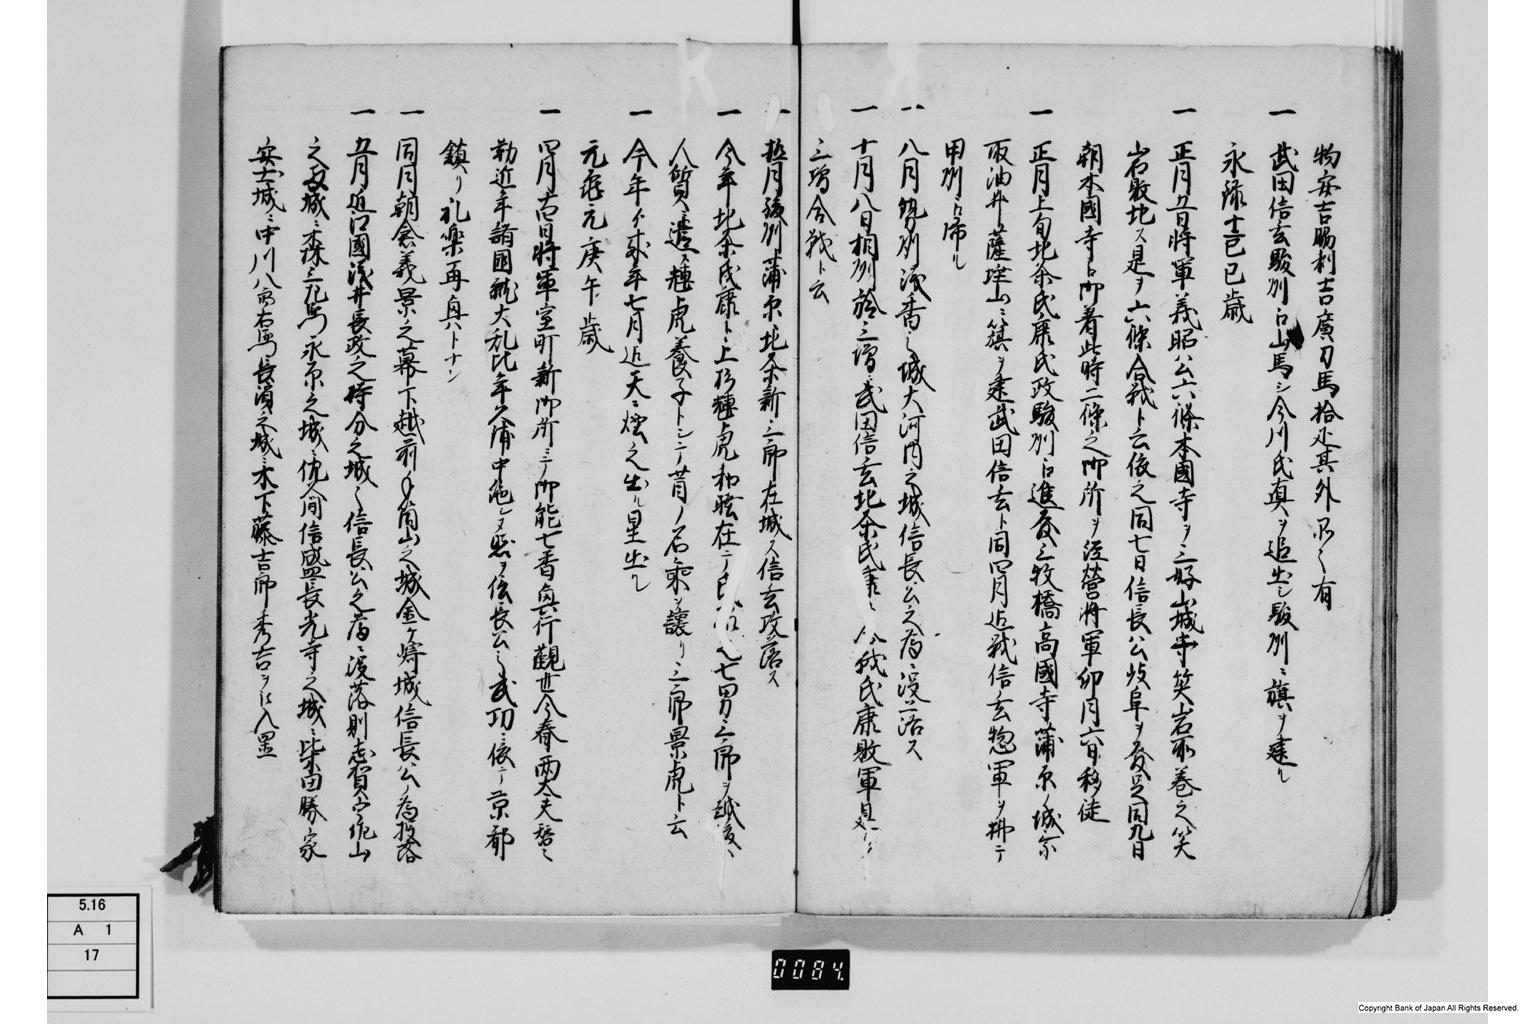 物安吉賜利吉廣刀馬拾疋其外品々有
一 武田信玄駿州ニ出馬シ今川氏真ヲ追出シ駿州ニ旗ヲ建ル
永録十二己巳歳
一 正月五日将軍義昭公六條本國寺ヲ三好山城守笑岩不巻之笑
岩敗北ス是ヲ六條合戦ト云依之同七日信長公岐阜ヲ發足同九日
朝本國寺ニ御着此時二條之御所ヲ経營将軍卯月六日移徒
一 正月上旬北条氏康氏政駿州ニ進發三牧橋高國寺蒲原ノ城
取油井薩埵山ニ籏ヲ建武田信玄ト同四月迄戦信玄惣軍ヲ拂テ
甲州ニ帰ル
一 八月勢州城大河内之城信長公之為ニ没落ス
一 十月八日相州於三増武田信玄北条氏康合戦氏康敗軍
三増合戦ト云
一 極月駿州蒲原北条新三郎在城ス信玄攻落ス
一 今年北条氏康ト上杉輝虎和睦在テ氏康七男三郎ヲ越後ヘ
人質ニ遣ス輝虎養子トシテ昔ノ名乗ヲ譲リ三郎景虎ト云
一 今年ヨリ来年七月迄天ニ煙之出ル星出ル
元亀元庚午歳
一 四月十四日将軍室町新御所ニテ御能七番興行觀世今春両太夫
勤近年諸國就大乱比年洛中絶シヲ信長公之武功ニ依テ京都
鎮リ礼楽再興トナン
一 同月朝倉義景之幕下越前手筒山之城金ヶ崎城信長公ノ為ニ没落
一 五月近江國浅井長政之時分之城々信長公之為ニ没落則志賀宇佐山
之城ニ森三左衛門永原之城ニ佐久間信盛長光寺之城ニ柴田勝家
安土城ニ中川八郎右衛門長濱之城ニ木下藤吉郎秀吉ヲ入置
5.16
A 1
17
0084.
Copyright Bank of Japan All Rights Reserved.